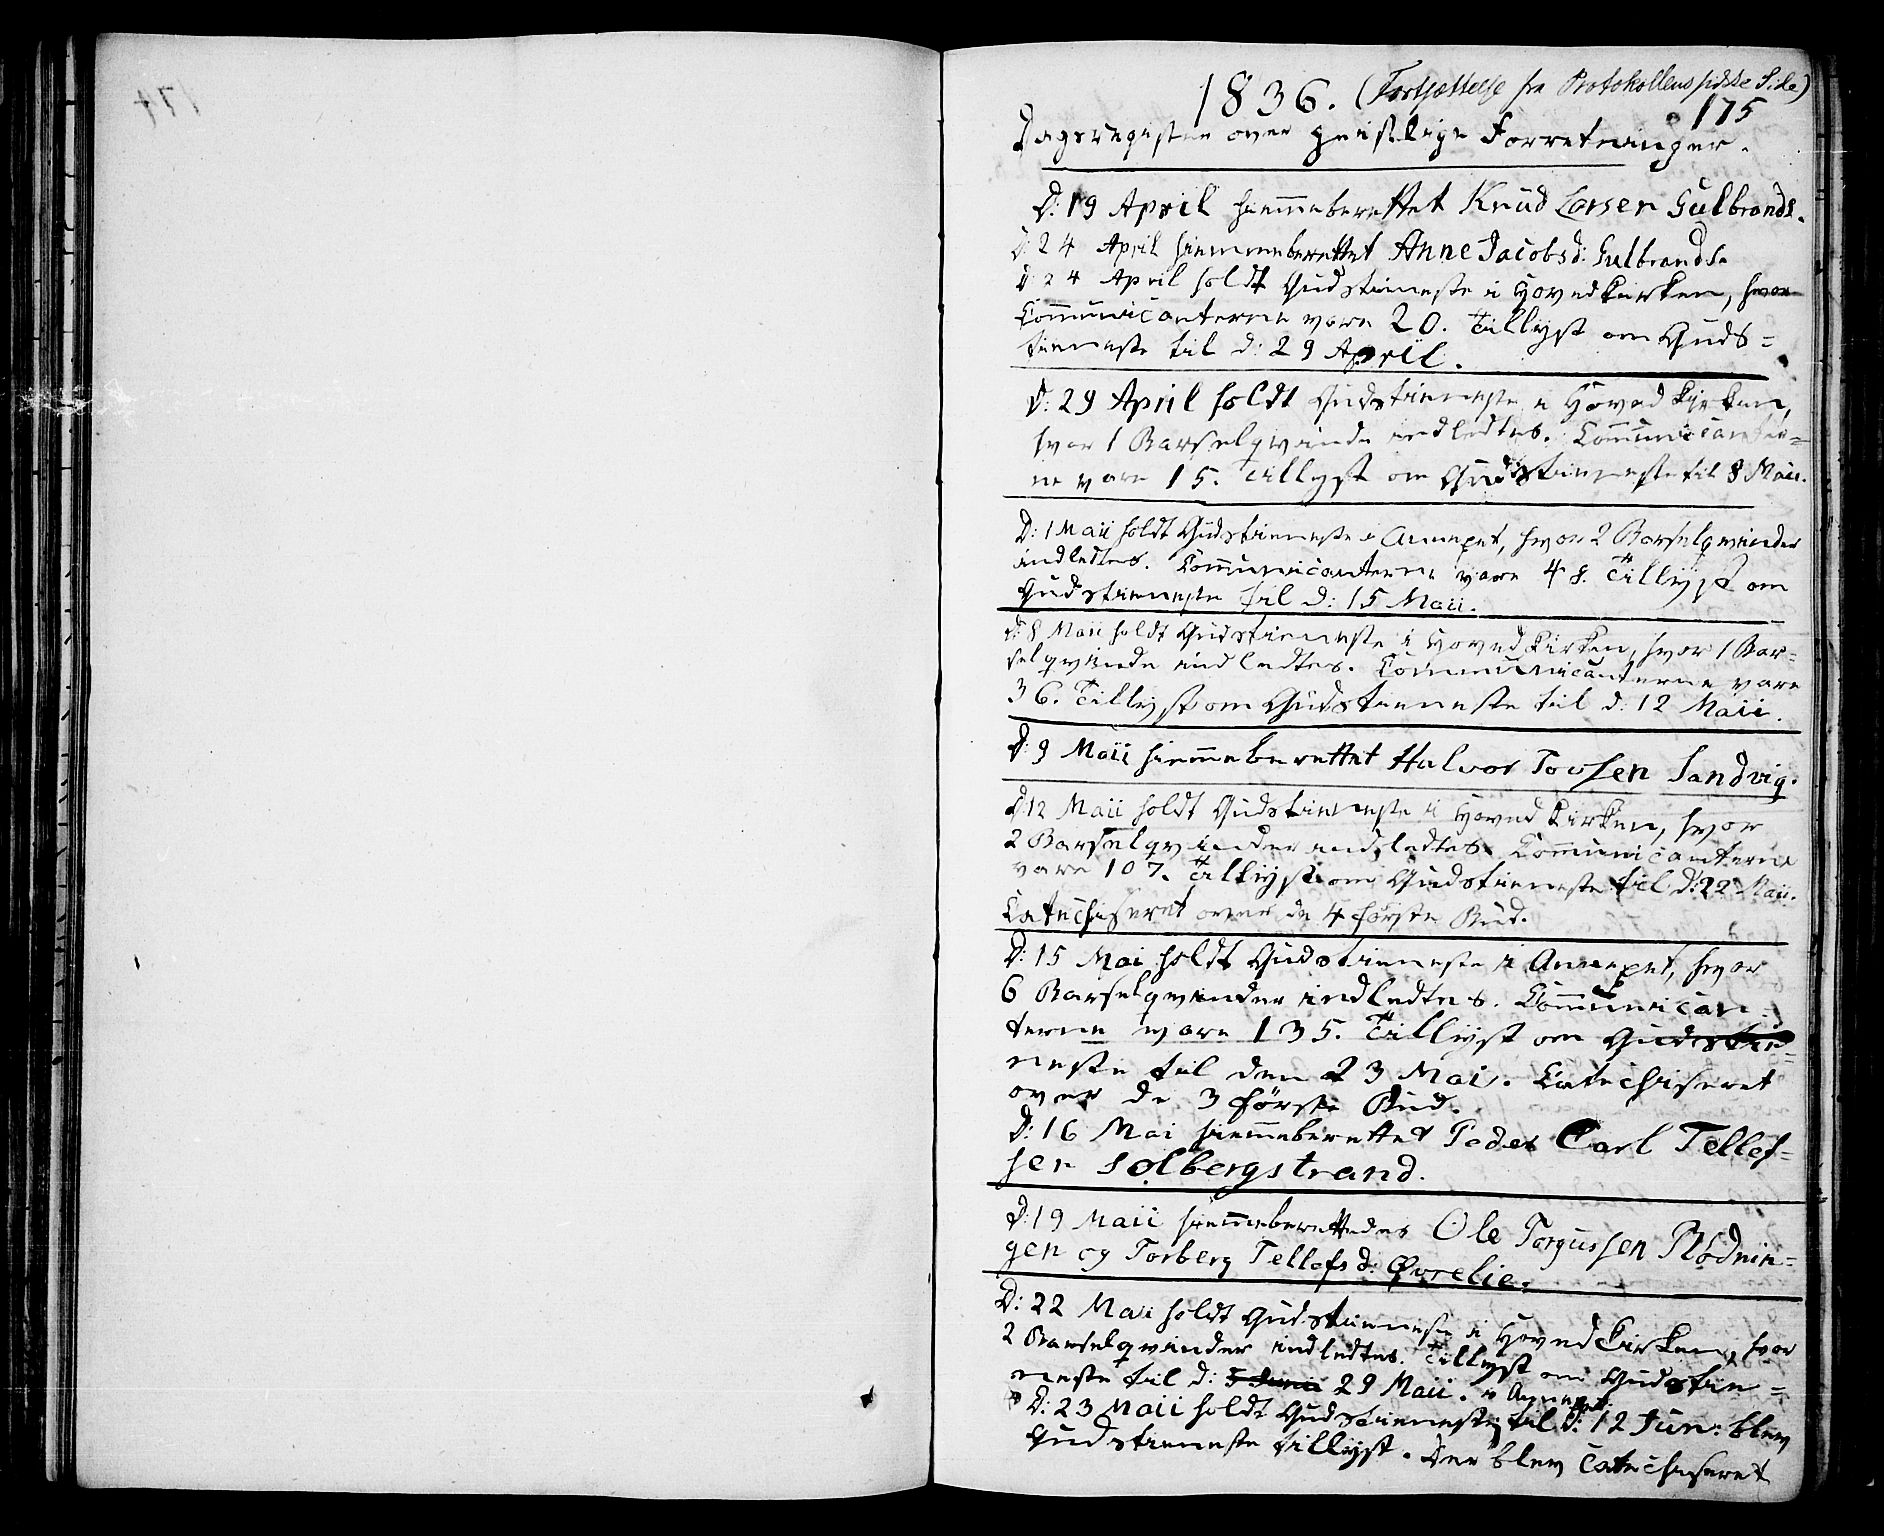 174
1836. (Fortsættelse fra Protokollens sidste Side)
175
Dagsregister over geistlige Forretninger.
D: 19 April hiemmeberettet Knud Larsen Gulbrands.
D: 24 April hiemmeberettet Anne Jacobsd: Gulbrands.
D 24 April holdt Gudstieneste i Hovedkirken, hvor
Communicanterne vare 20. Tillyst om Guds=
tieneste til d: 29 April.
D: 29 April holdt Gudstieneste i Hovedkirken,
hvor 1 Barselqvinde indledtes. Communicanter=
ne vare 15. Tillyst om Gudstieneste til 8 Maii.
D: 1 Maii holdt Gudstieneste i Annexet, hvor 2 Barselqvinder
indledtes. Communicanterne vare 48. Tillyst om
Gudstieneste til d: 15 Maii.
D: 8 Maii holdt Gudstieneste i Hovedkirken, hvor 1 Bar=
selqvinde indledtes. Communicanterne vare
36. Tillyst om Gudstieneste til d: 12 Maii.
D: 9 Maii hiemmeberettet Halvor Tovsen Sandvig.
D 12 Maii holdt Gudstieneste i Hovedkirken, hvor
2 Barselqvinder indledtes. Communicanterne
vare 107. Tillyst om Gudstieneste til d: 22 Maii.
Catechiseret over de 4 første Bud.
D: 15 Mai holdt Gudstieneste i Annexet, hvor
6 Barselqvinder indledtes. Communican=
terne vare 135. Tillyst om Gudstie=
neste til den 23 Mai. Catechiseret
over de 3 første Bud.
D: 16 Mai hiemmeberettet Peder Carl Tellef=
sen Solbergstrand.
D: 19 Maii hiemmeberettedes Ole Torgussen Rødnin=
gen og Torberg Tellefsd: Øvrelie.
D: 22 Mai holdt Gudstieneste i Hovedkirken, hvor
2 Barselqvinder indledtes. Tillyst om Gudstie=
neste til d: 5 Junii 29 Maii.
D: 23 Maii holdt Gudstieneste i Annexet. til d: 12 Jun: blev
Gudstieneste tillyst. Der blev Catechiseret